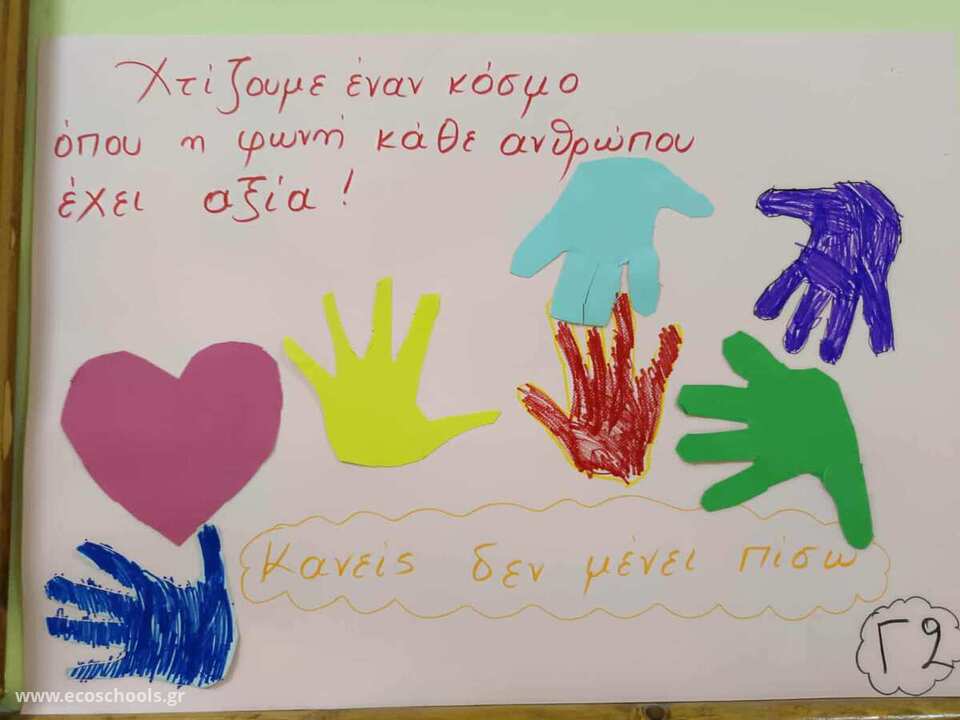 Χτίζουμε έναν κόσμο
όπου η φωνή κάθε ανθρώπου
έχει αξία!
Κανείς δεν μένει πίσω
Γ2
www.ecoschools.gr